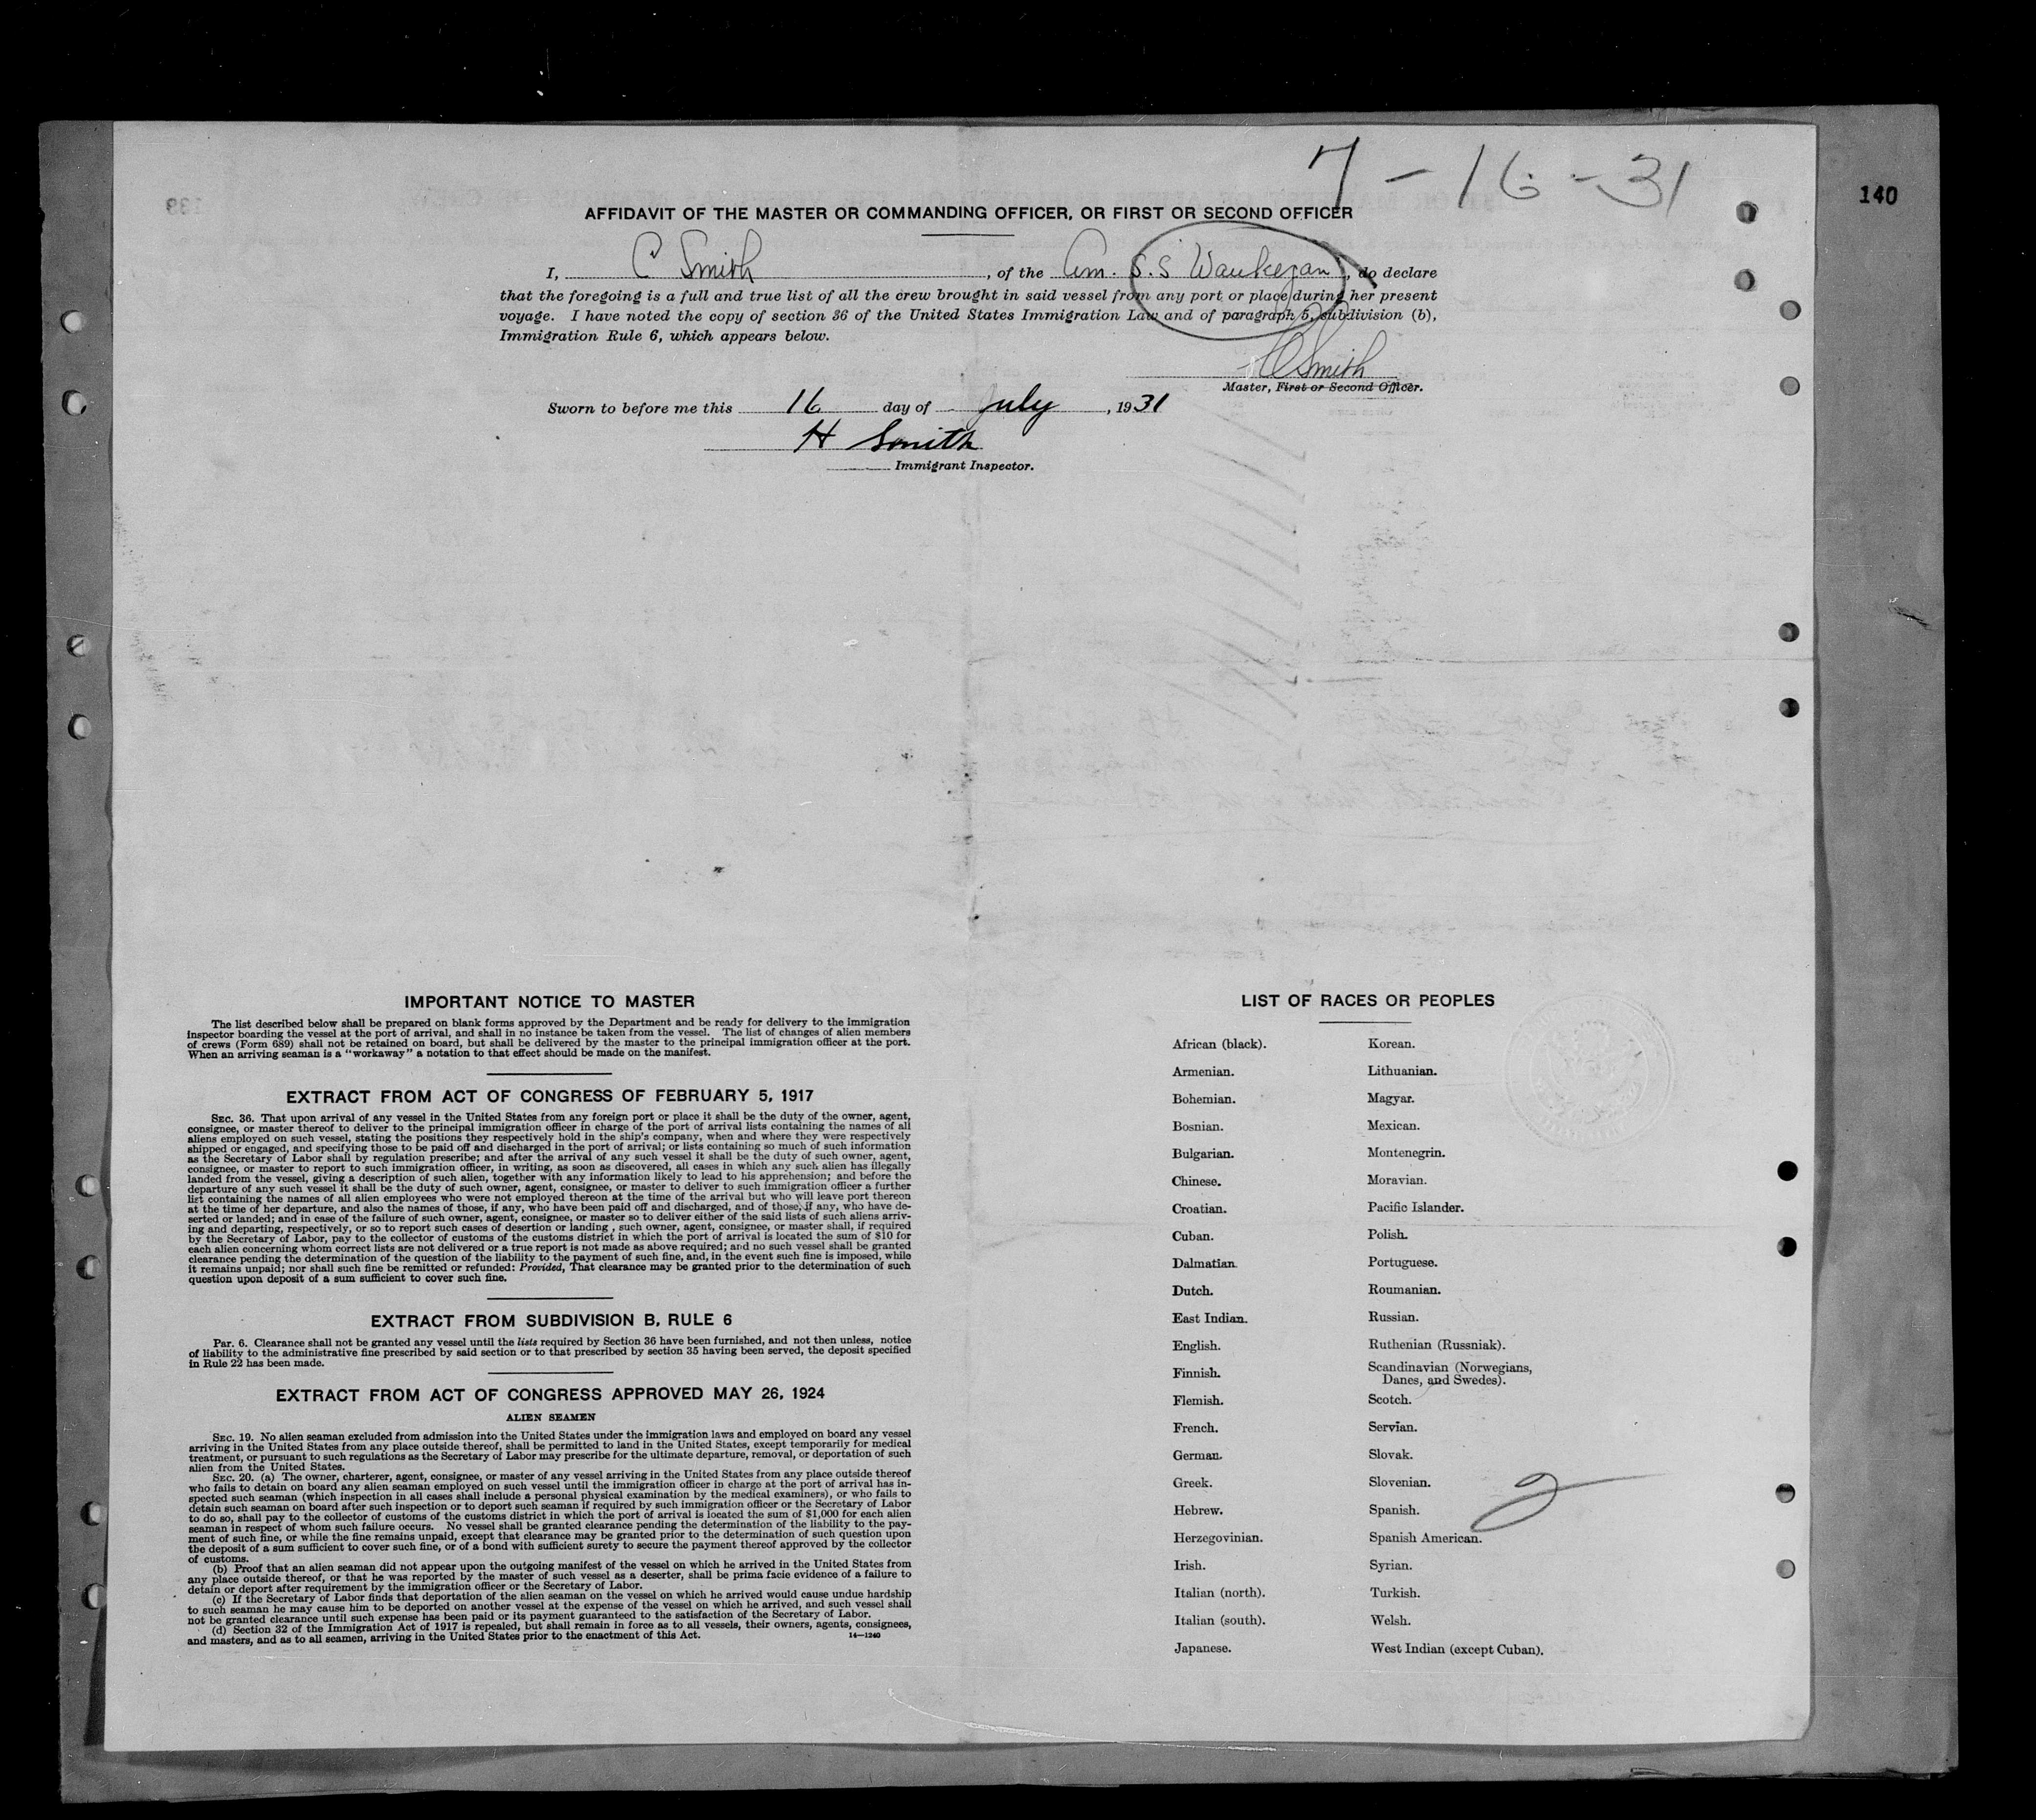 7-16-31
140
AFFIDAVIT OF THE MASTER OR COMMANDING OFFICER, OR FIRST OR SECOND OFFICER
I, C Smith, of the Am. S.S Waukegan, do declare
that the foregoing is a full and true list of all the crew brought in said vessel from any port or place during her present
voyage. I have noted the copy of section 36 of the United States Immigration Law and of paragraph 5, subdivision (b),
Immigration Rule 6, which appears below.
C Smith
Master, First or Second Officer.
Sworn to before me this 16 day of July, 1931
H Smith
Immigrant Inspector.
IMPORTANT NOTICE TO MASTER
The list described below shall be prepared on blank forms approved by the Department and be ready for delivery to the immigration
inspector boarding the vessel at the port of arrival, and shall in no instance be taken from the vessel. The list of changes of alien members
of crews (Form 689) shall not be retained on board, but shall be delivered by the master to the principal immigration officer at the port.
When an arriving seaman is a "workaway" a notation to that effect should be made on the manifest.
EXTRACT FROM ACT OF CONGRESS OF FEBRUARY 5, 1917
SEC. 36. That upon arrival of any vessel in the United States from any foreign port or place it shall be the duty of the owner, agent,
consignee, or master thereof to deliver to the principal immigration officer in charge of the port of arrival lists containing the names of all
aliens employed on such vessel, stating the positions they respectively hold in the ship's company, when and where they were respectively
shipped or engaged, and specifying those to be paid off and discharged in the port of arrival; or lists containing so much of such information
as the Secretary of Labor shall by regulation prescribe; and after the arrival of any such vessel it shall be the duty of such owner, agent,
consignee, or master to report to such immigration officer, in writing, as soon as discovered, all cases in which any such alien has illegally
landed from the vessel, giving a description of such alien, together with any information likely to lead to his apprehension; and before the
departure of any such vessel it shall be the duty of such owner, agent, consignee, or master to deliver to such immigration officer a further
list containing the names of all alien employees who were not employed thereon at the time of the arrival but who will leave port thereon
at the time of her departure, and also the names of those, if any, who have been paid off and discharged, and of those, if any, who have de-
serted or landed; and in case of the failure of such owner, agent, consignee, or master so to deliver either of the said lists of such aliens arriv-
ing and departing, respectively, or so to report such cases of desertion or landing, such owner, agent, consignee, or master shall, if required
by the Secretary of Labor, pay to the collector of customs of the customs district in which the port of arrival is located the sum of $10 for
each alien concerning whom correct lists are not delivered or a true report is not made as above required; and no such vessel shall be granted
clearance pending the determination of the question of the liability to the payment of such fine, and, in the event such fine is imposed, while
it remains unpaid; nor shall such fine be remitted or refunded: Provided, That clearance may be granted prior to the determination of such
question upon deposit of a sum sufficient to cover such fine.
EXTRACT FROM SUBDIVISION B, RULE 6
Par. 6. Clearance shall not be granted any vessel until the lists required by Section 36 have been furnished, and not then unless, notice
of liability to the administrative fine prescribed by said section or to that prescribed by section 35 having been served, the deposit specified
in Rule 22 has been made.
EXTRACT FROM ACT OF CONGRESS APPROVED MAY 26, 1924
ALIEN SEAMEN
SEC. 19. No alien seaman excluded from admission into the United States under the immigration laws and employed on board any vessel
arriving in the United States from any place outside thereof, shall be permitted to land in the United States, except temporarily for medical
treatment, or pursuant to such regulations as the Secretary of Labor may prescribe for the ultimate departure, removal, or deportation of such
alien from the United States.
SEC. 20. (a) The owner, charterer, agent, consignee, or master of any vessel arriving in the United States from any place outside thereof
who fails to detain on board any alien seaman employed on such vessel until the immigration officer in charge at the port of arrival has in-
spected such seaman (which inspection in all cases shall include a personal physical examination by the medical examiners), or who fails to
detain such seaman on board after such inspection or to deport such seaman if required by such immigration officer or the Secretary of Labor
to do so, shall pay to the collector of customs of the customs district in which the port of arrival is located the sum of $1,000 for each alien
seaman in respect of whom such failure occurs. No vessel shall be granted clearance pending the determination of the liability to the pay-
ment of such fine, or while the fine remains unpaid, except that clearance may be granted prior to the determination of such question upon
the deposit of a sum sufficient to cover such fine, or of a bond with sufficient surety to secure the payment thereof approved by the collector
of customs.
(b) Proof that an alien seaman did not appear upon the outgoing manifest of the vessel on which he arrived in the United States from
any place outside thereof, or that he was reported by the master of such vessel as a deserter, shall be prima facie evidence of a failure to
detain or deport after requirement by the immigration officer or the Secretary of Labor.
(c) If the Secretary of Labor finds that deportation of the alien seaman on the vessel on which he arrived would cause undue hardship
to such seaman he may cause him to be deported on another vessel at the expense of the vessel on which he arrived, and such vessel shall
not be granted clearance until such expense has been paid or its payment guaranteed to the satisfaction of the Secretary of Labor.
(d) Section 32 of the Immigration Act of 1917 is repealed, but shall remain in force as to all vessels, their owners, agents, consignees,
and masters, and as to all seamen, arriving in the United States prior to the enactment of this Act.
14—1240
LIST OF RACES OR PEOPLES
African (black).
Armenian.
Bohemian.
Bosnian.
Bulgarian.
Chinese.
Croatian.
Cuban.
Dalmatian.
Dutch.
East Indian.
English.
Finnish.
Flemish.
French.
German.
Greek.
Hebrew.
Herzegovinian.
Irish.
Italian (north).
Italian (south).
Japanese.
Korean.
Lithuanian.
Magyar.
Mexican.
Montenegrin.
Moravian.
Pacific Islander.
Polish.
Portuguese.
Roumanian.
Russian.
Ruthenian (Russniak).
Scandinavian (Norwegians,
Danes, and Swedes).
Scotch.
Servian.
Slovak.
Slovenian.
Spanish.
Spanish American.
Syrian.
Turkish.
Welsh.
West Indian (except Cuban).
2